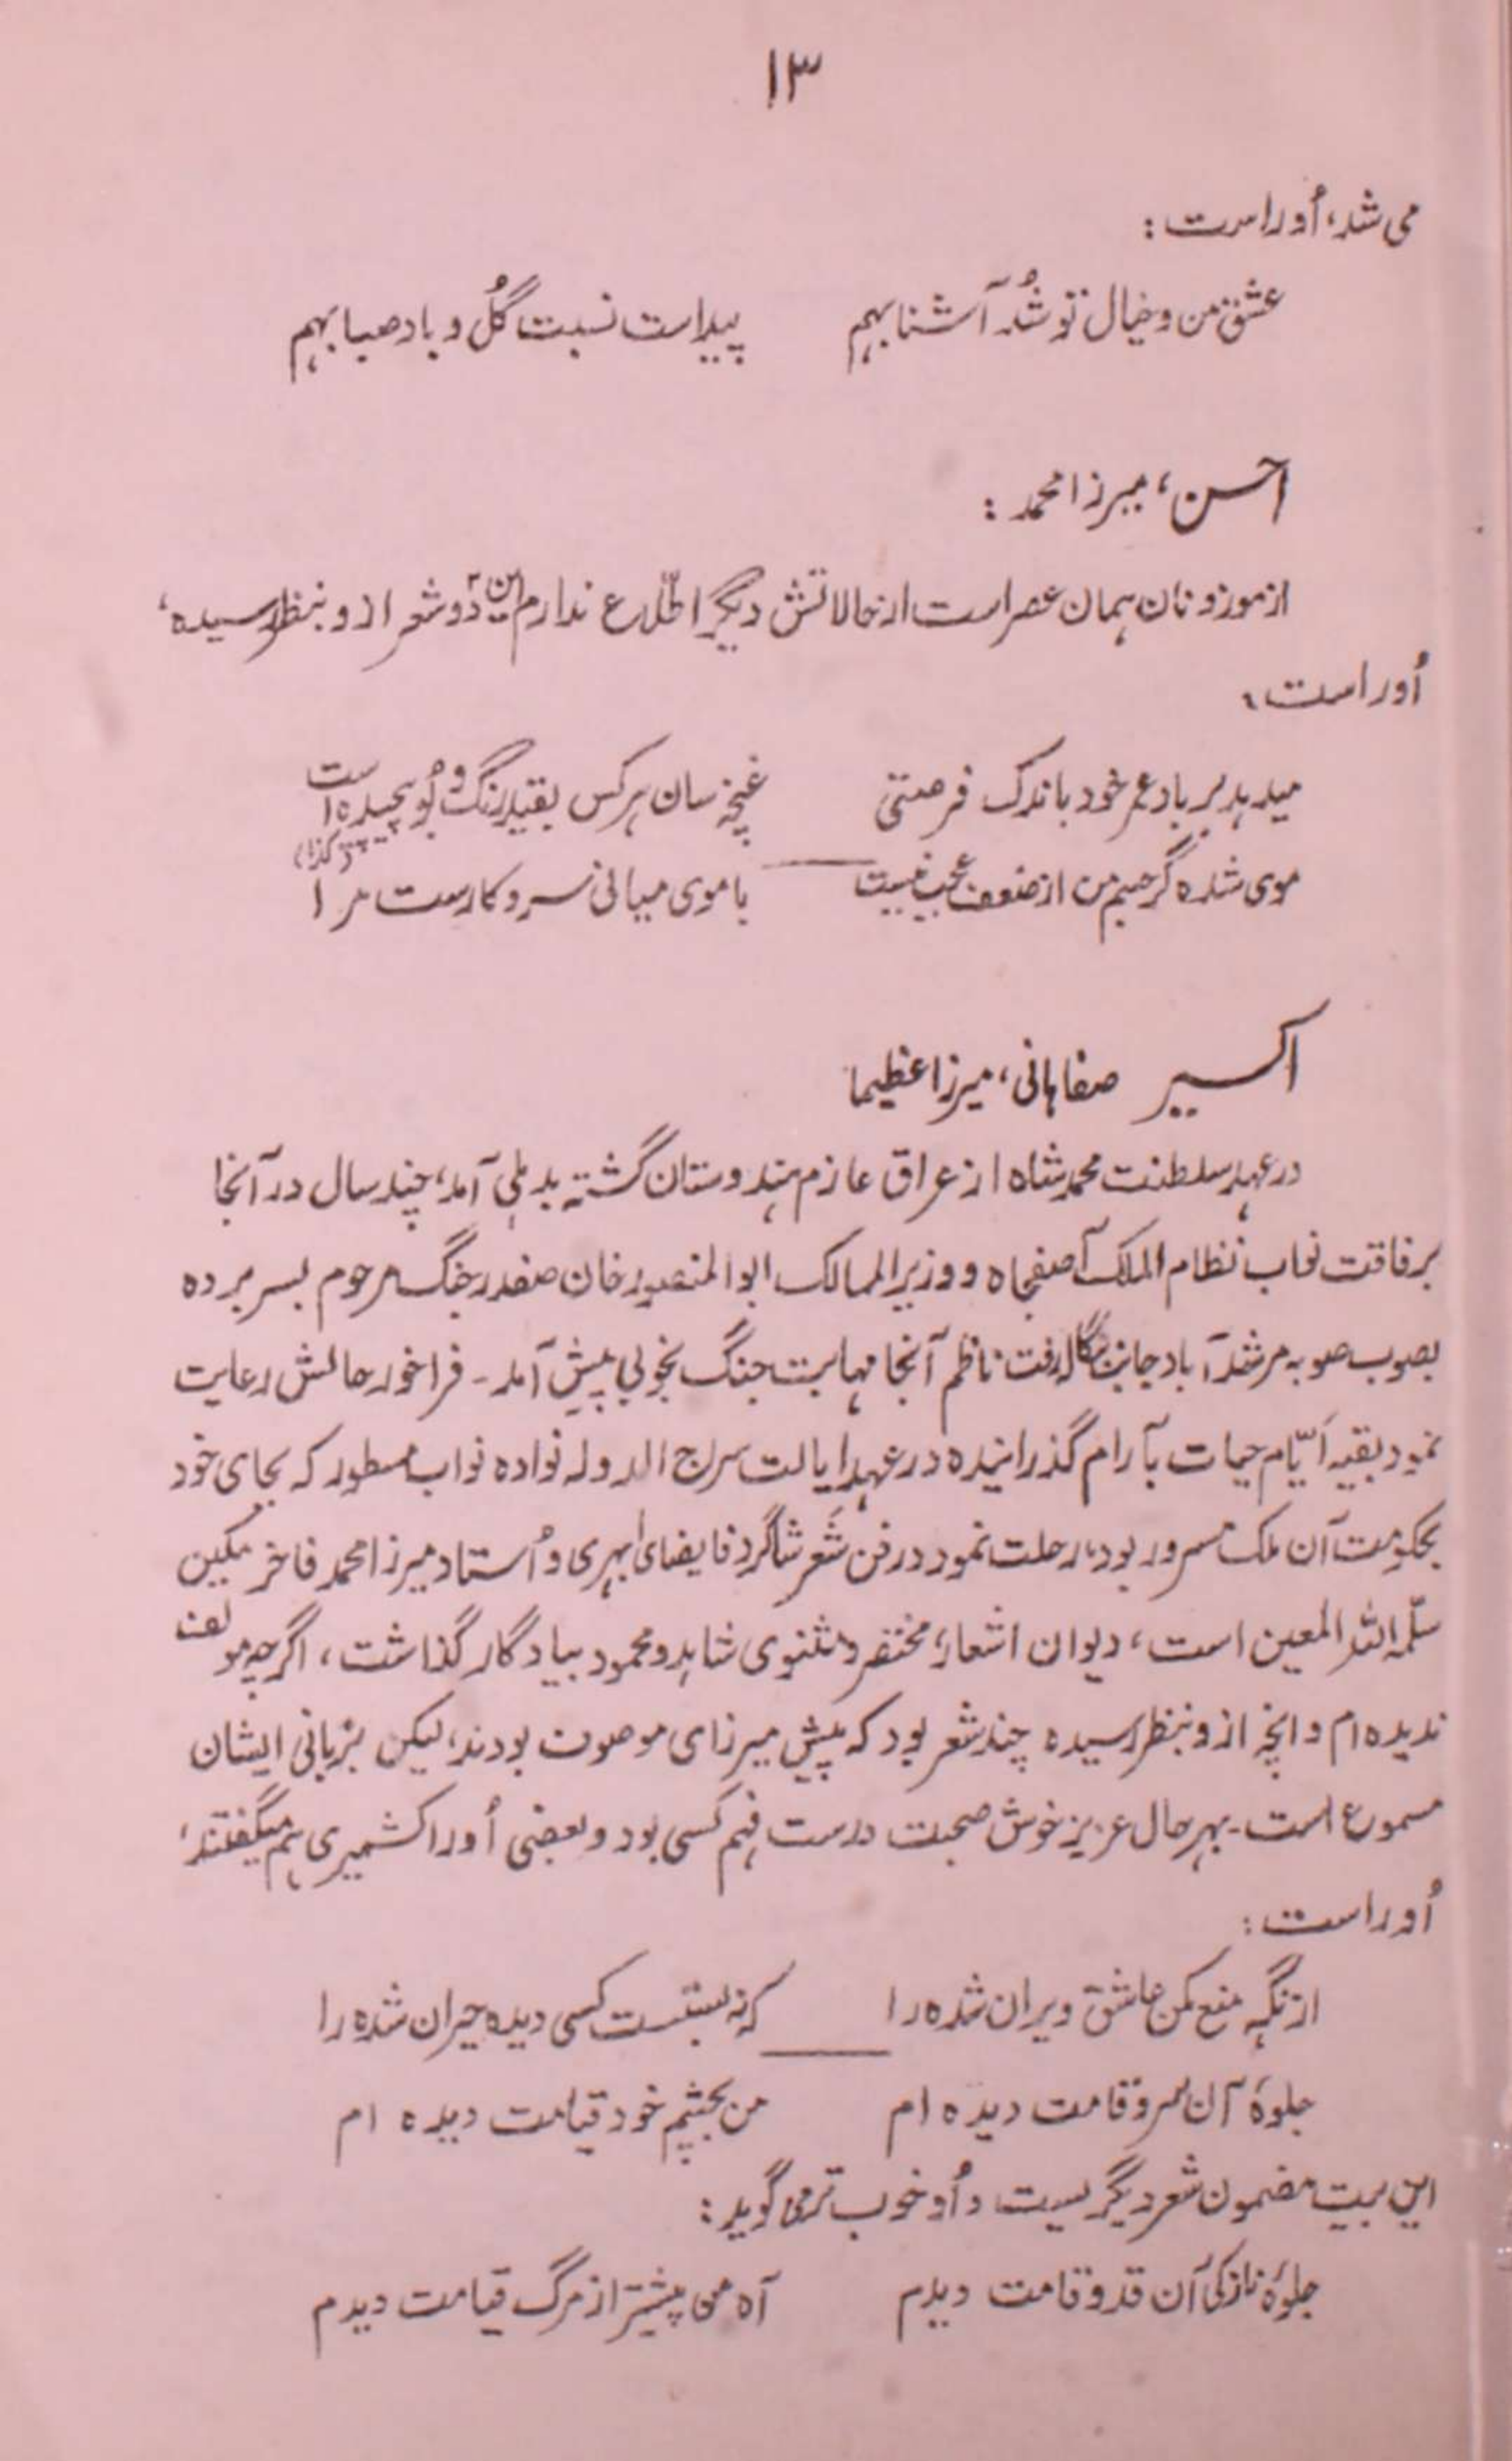 ۱۳
می شد، اُو راست :
عشق من و خیال تو شُد آشنا بهم    پیداست نسبت گُل و باد صبا بهم
احسن، میرزا محمد :
از موزونان همان عصر است از حالاتش دیگر اطّلاع ندارم این دو شعر ازو بنظر رسیده،
اُو راست،
میدهد بر باد عمر خود باندک فرصتی    غنچه سان هرکس بقید رنگ و بُو پیچیده است
موی شده گر جسم من از ضعف عجب نیست    با موی میانی سر و کارست مرا (کذا)
اکسیر صفاهانی، میرزا عظیما
در عهد سلطنت محمد شاه از عراق عازم هندوستان گشته بدهلی آمد، چند سال در آنجا
برفاقت نواب نظام الملک آصفجاه و وزیر الممالک ابو المنصور خان صفدر جنگ مرحوم بسر برده
بصوب صوبه مرشد آباد جانب بنگاله رفت ناظم آنجا مهابت جنگ بخوبی پیش آمد - فراخور حالش رعایت
نمود بقیه ایّام حیات بآرام گذرانیده در عهد ایالت سراج الدوله نواده نواب مسطور که بجای خود
بحکومت آن ملک مسرور بود، رحلت نمود در فن شعر شاگرد فایضای ابهری و اُستاد میرزا محمد فاخر مکین
سلّمه الله المعین است، دیوان اشعار، مختصر و مثنوی شاهد و محمود بیادگار گذاشت، اگرچه مولف
ندیده ام و انچه ازو بنظر رسیده چند شعر بود که پیش میرزای موصوف بودند، لیکن بزبانی ایشان
مسموع است - بهرحال عزیز خوش صحبت درست فهم کسی بود و بعضی اُو را کشمیری هم میگفتند،
اُو راست :
از نگه منع مکن عاشق ویران شده را    که نه بستست کسی دیده حیران شده را
جلوهٔ آن سرو قامت دیده ام    من بچشم خود قیامت دیده ام
این بیت مضمون شعر دیگریست و اُو خوب تر می گوید :
جلوهٔ نازکی آن قد و قامت دیدم    آه من پیشتر از مرگ قیامت دیدم